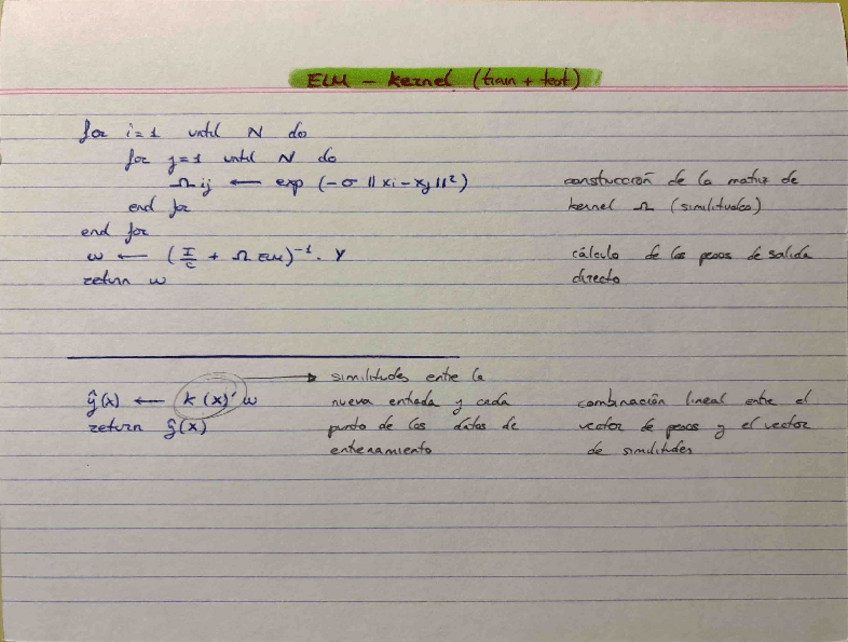 ELM - kernel (train + test)
for i=1 until N do
for j=1 until N do
Ω ij ← exp (-σ || xi - xj ||²)
end for
end for
ω ← (I/C + Ω ELM)⁻¹ · Y
return ω
construcción de la matriz de
kernel Ω (similitudes)
cálculo de los pesos de salida
directo
ŷ(x) ← k(x)' ω
return ŷ(x)
similitudes entre la
nueva entrada y cada
punto de los datos de
entrenamiento
combinación lineal entre el
vector de pesos y el vector
de similitudes